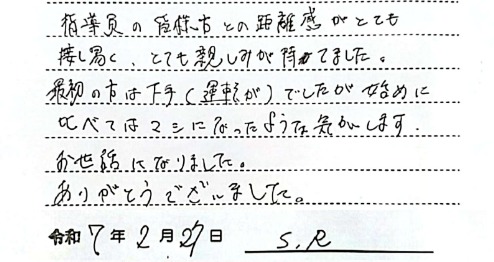 指導員の皆様方との距離感がとても
接し易く、とても親しみが持ててました。
最初の方は下手(運転が)でしたが始めに
比べてはマシになったような気がします.
お世話になりました。
ありがとうございました。
令和7年2月27日 S.R